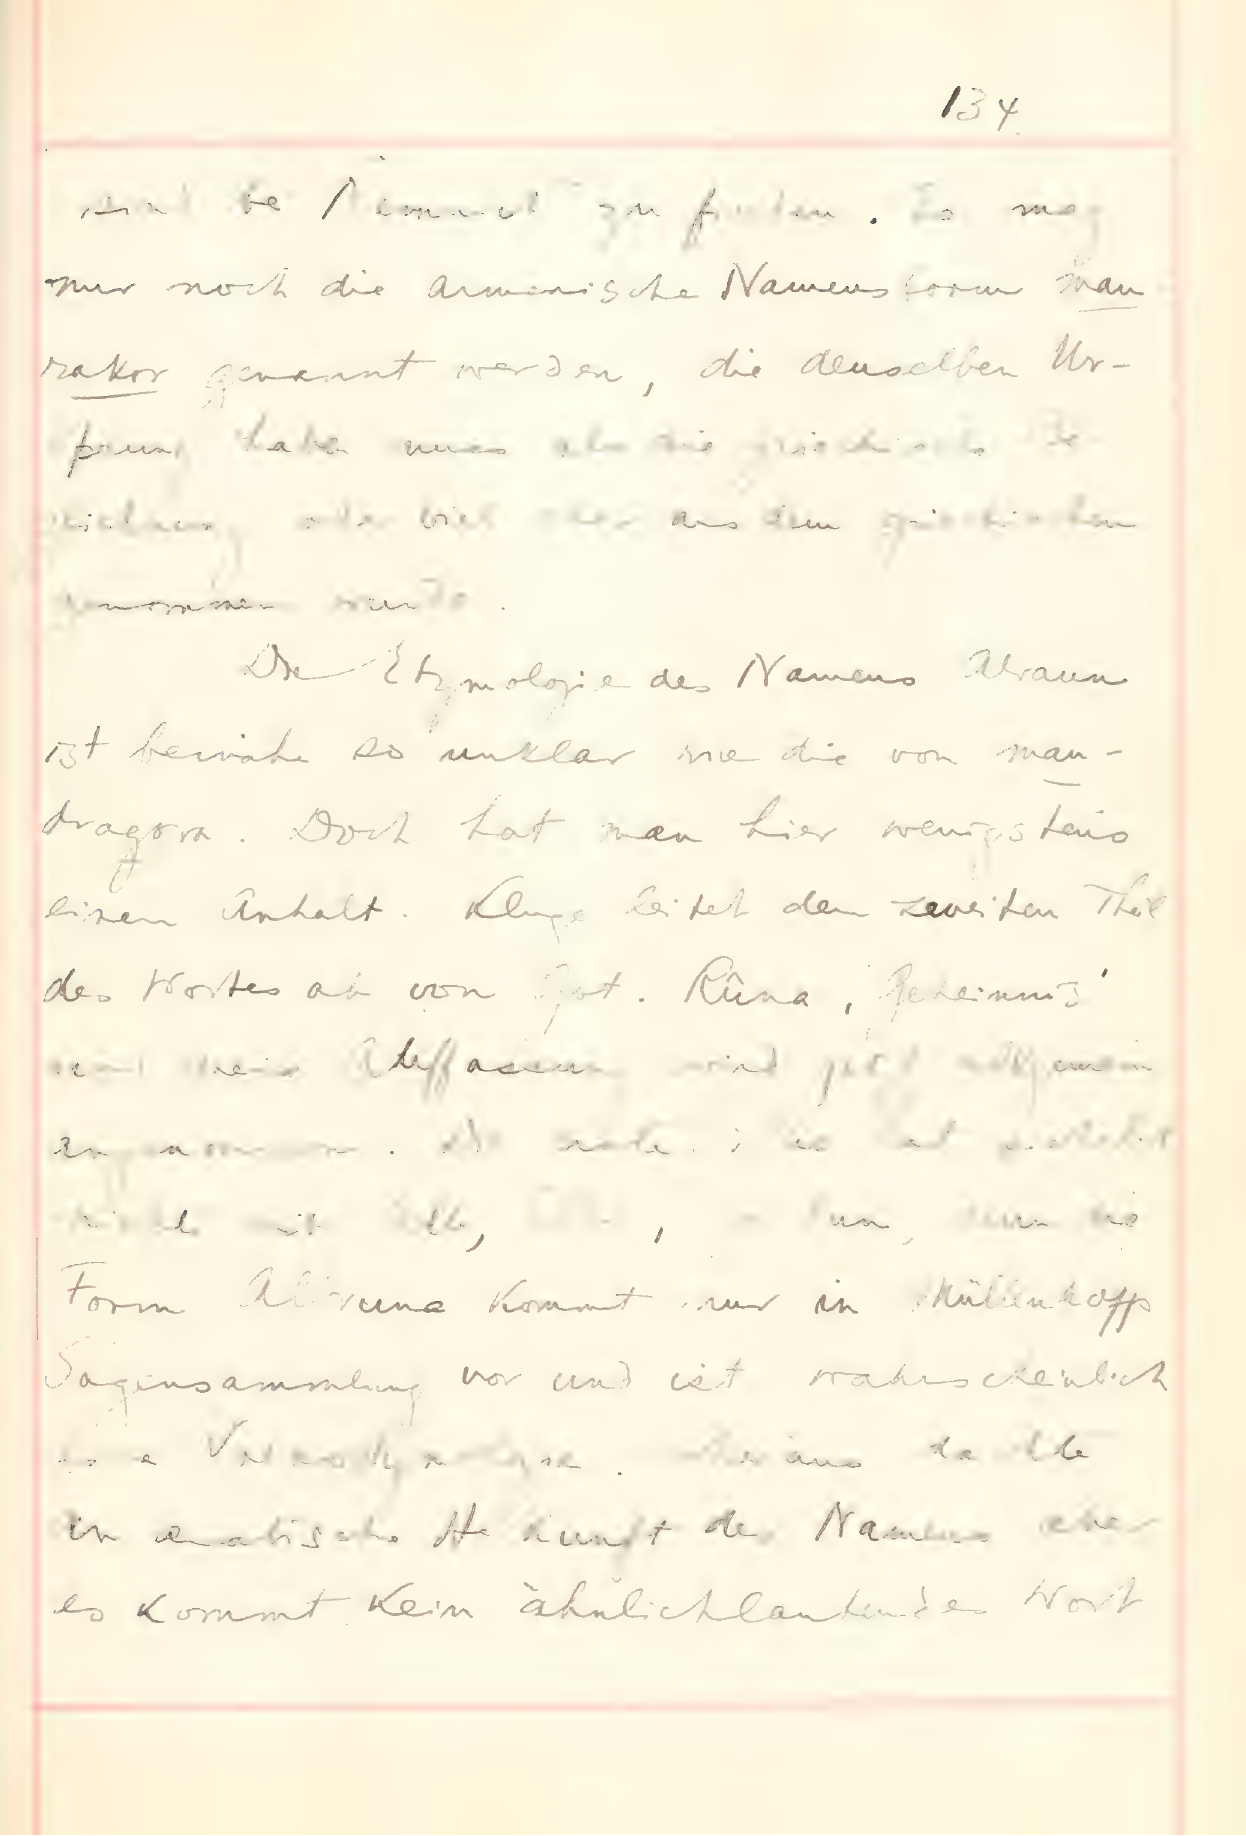 134
sind bei zu finden. Es mag
nur noch die armenische Namensform man-
rakor genannt werden, die denselben Ur-
sprung haben muss als die griechische Be-
zeichnung oder viel eher aus dem griechischen
genommen wurde.
Die Etymologie des Namens Alraun
ist beinahe so unklar wie die von man-
dragora. Doch hat man hier wenigstens
einen Anhalt. Kluge leitet den zweiten Theil
des Wortes ab von Got. Rûna, Geheimnis'
und Auffassung wird jetzt allgemein
angenommen. Die erste hat
nichts mit tun, denn die
Form Alruna kommt nur in Müllenhoffs
Sagensammlung vor und ist wahrscheinlich
eine Volksetymologie. dachte
an Herkunft des Namens aber
es kommt kein ähnlichlautendes Wort